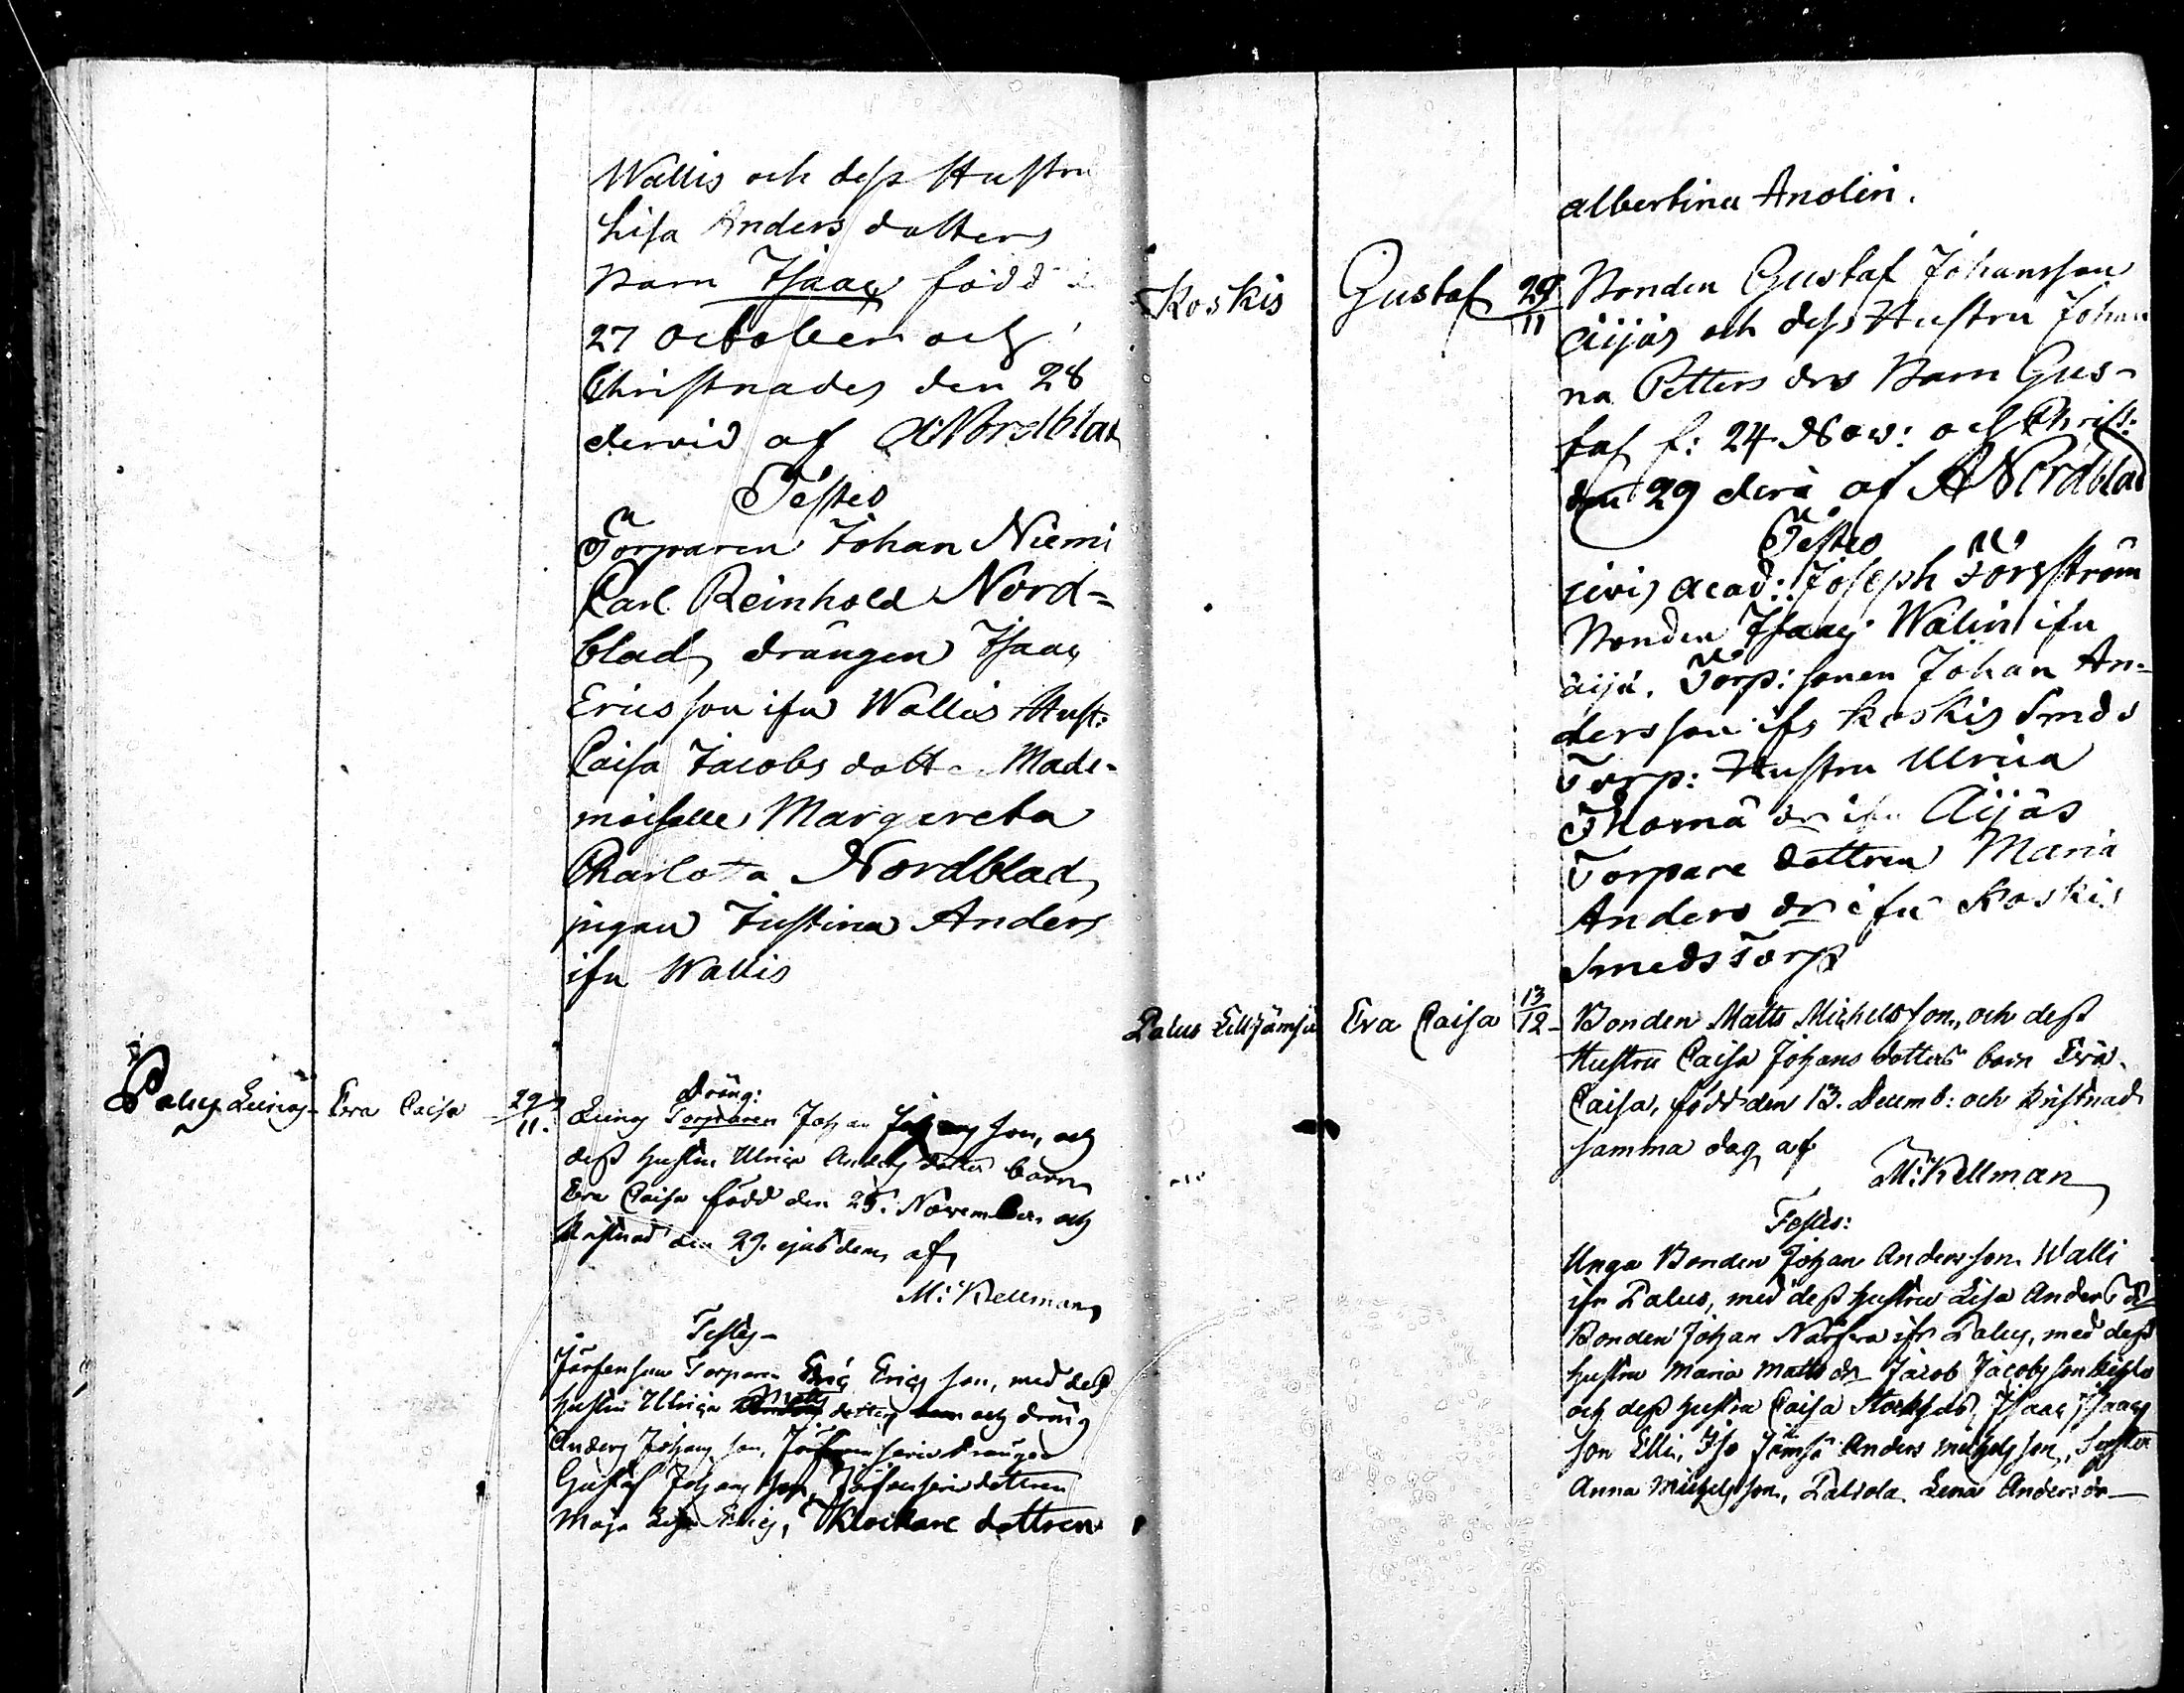 Wallis och dess Hustru
Lisa Anders dotters
Barn Isaac född
27 October och
Christnades den 28
dervid af A: Nordblad
Testes
Torparen Johan Niemi
Carl Reinhold Nord-
blad, drängen Isaac
Ericsson ifrn Wallis Hust:
Caisa Jacobs dott Made-
moiselle Margareta
Charlotta Nordblad,
pigan Justina Anders
ifrn Wallis
Palus Leinos Eva Caisa 29/11.
Dräng:
Leinos Torparen Johan son, och
dess hustru Ulrica Anders dotters barn
Eva Caisa född den 25. November och
kristnad den 29. ejusdem af
M: Kellman
Testes
Torparen Eric Erics son, med dess
hustru Ulrica Matts dotter och dräng
Anders Johans son, drängen
Gustaf Johans son, dottren
Maja Lisa Erics, Klockare dottren
albertina Anolin.
Koskis Gustaf 29/11
Bonden Gustaf Johansson
Äijäs och dess Hustru Johan
na Petters drs Barn Gus-
taf f: 24 Nov: och Christ:
den 29 derå af A Nordblad
Testes
civis acad: Joseph Törnström
Bonden Isaac Walin ifrn
äijä. Torp: sonen Johan An-
dersson ifrn Koskis Smeds
Torp: Hustru Ulrica
Thomä dr ifrn Äijäs
Torpare dottren Maria
Anders dr ifrn Koskis
Smedstorp
Palus Lill Jämsä Eva Caisa 13/12
Bonden Matts Michelsson, och dess
Hustru Caisa Johans dotters barn Eva
Caisa, född den 13. Decemb: och kristnad
samma dag af
M: Kellman
Testes:
Unga Bonden Johan Andersson Walli
ifr Palus, med dess hustru Lisa Anders dr
Bonden Johan Närfwa ifr Palus, med dess
hustru Maria Matts dr Jacob Jacobsson
och dess hustru Caisa Isaac Isaacs
son Elli, Iso Jämsä Anders Michelsson, Syster
Anna Michelsson, Lena Anders dr